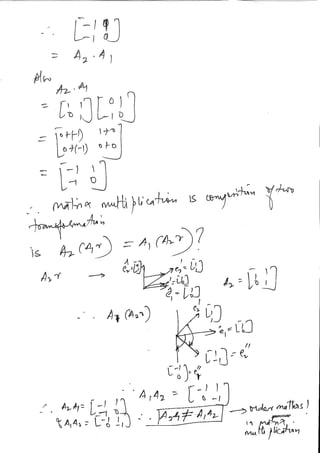 ∴ [-1 1
-1 0]
= A2 . A1
Also
A2 . A1
= [1 1
0 1] [0 1
-1 0]
= [0+(-1) 1+0
0+(-1) 0+0]
= [-1 1
-1 0]
∴ matrix multiplication is composition of two
transformation
is A2 (A1 r) = A1 (A2 r)?
A2 r →
A2 = [1 1
0 1]
∴ A1 (A2 r)
A1 A2 = [-1 1
0 -1]
∴ A2 A1 = [-1 1
-1 0]
∴ A2 A1 ≠ A1 A2 → order matters!
in matrix
multiplication